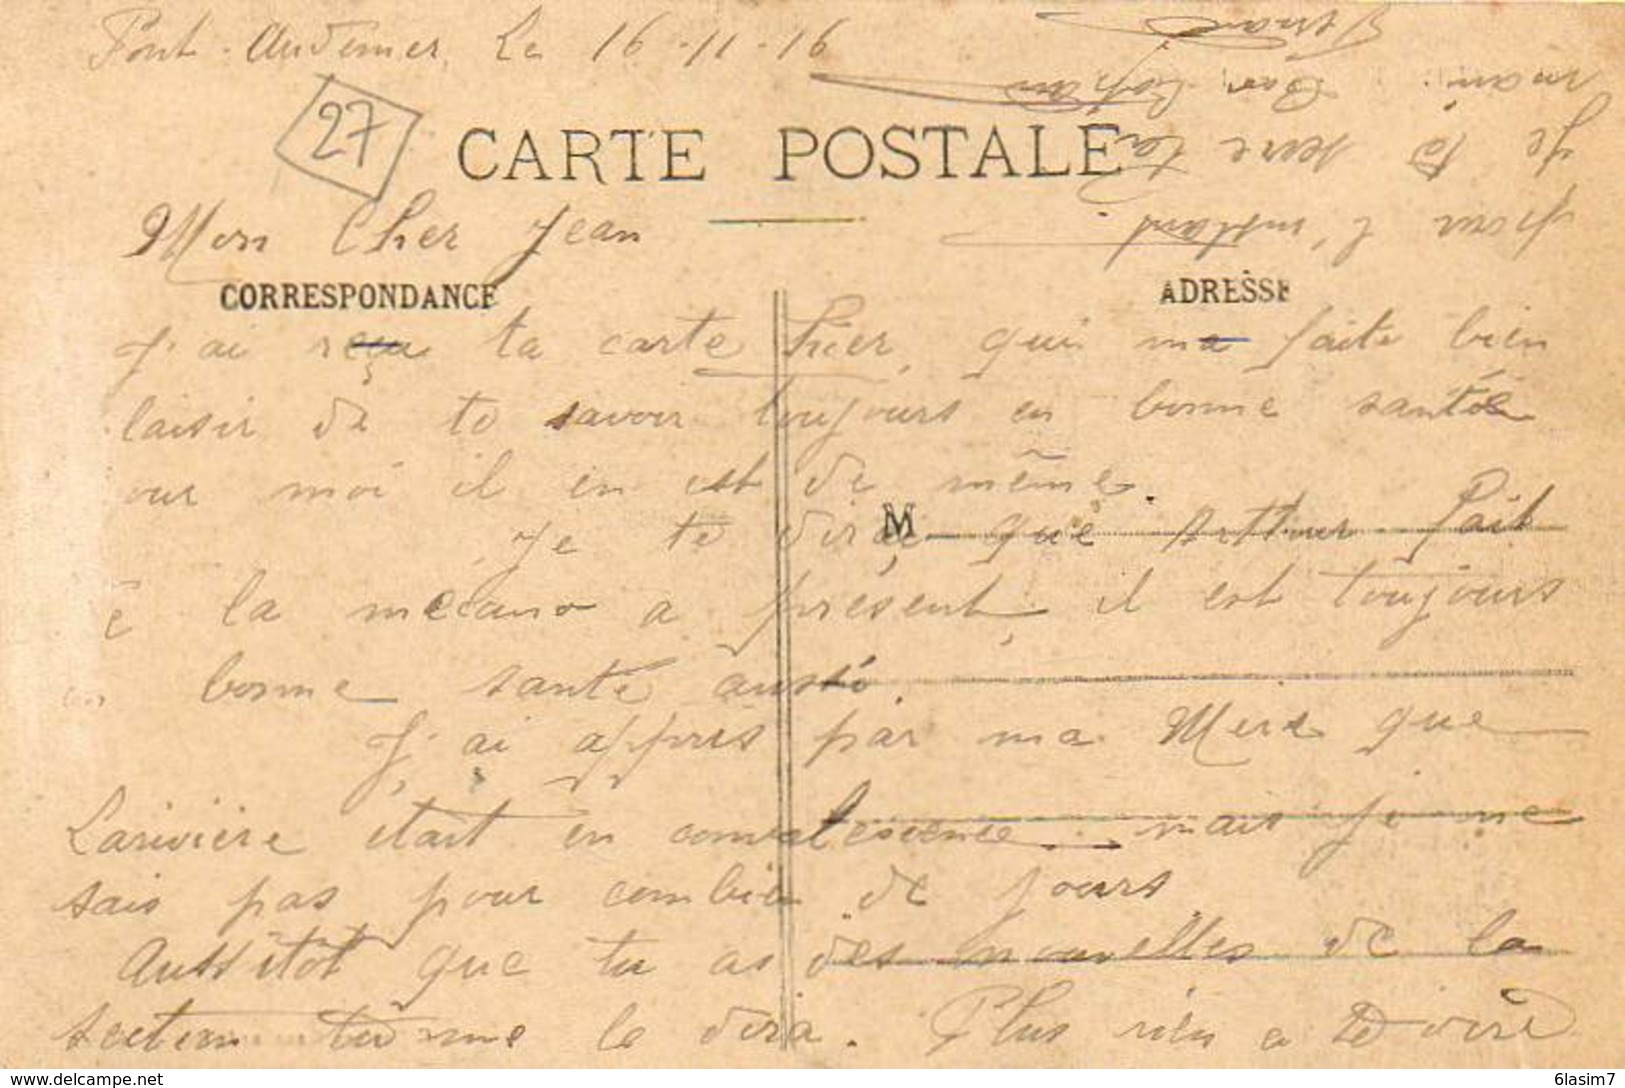 Pont-Audemer, Le 16-11-16
27
CARTE POSTALE
Mon Cher Jean
CORRESPONDANCE
ADRESSE
J'ai reçu ta carte hier, qui ma faite bien
laisir de te savoir toujours en bonne santée
our moi il en est de même.
M
Je te dire que Arthur fait
e la mécano a présent, il est toujours
bonne santé aussi.
J'ai appris par ma Mere que
Lariviere était en convalescence. mais je ne
sais pas pour combien de jours
Aussitôt que tu as des nouvelles de la
section tu me le dira. Plus rien a te dire
pour l'instant.
Je te serre la
main. Ton Copain
delcampe.net
6lasim7